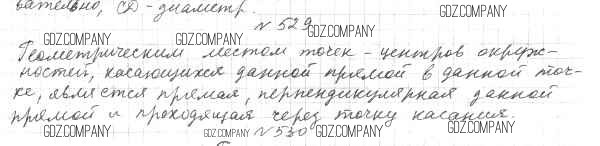 вательно, CD - диаметр.
N 529
GDZ.COMPANY
GDZ.COMPANY GDZ.COMPANY GDZ.COMPANY
Геометрическим местом точек - центров окруж-
ностей, касающихся данной прямой в данной точ-
ке, является прямая, перпендикулярная данной
прямой и проходящая через точку касания.
GDZ.COMPANY GDZ.COMPANY N 530 GDZ.COMPANY GDZ.COMPANY